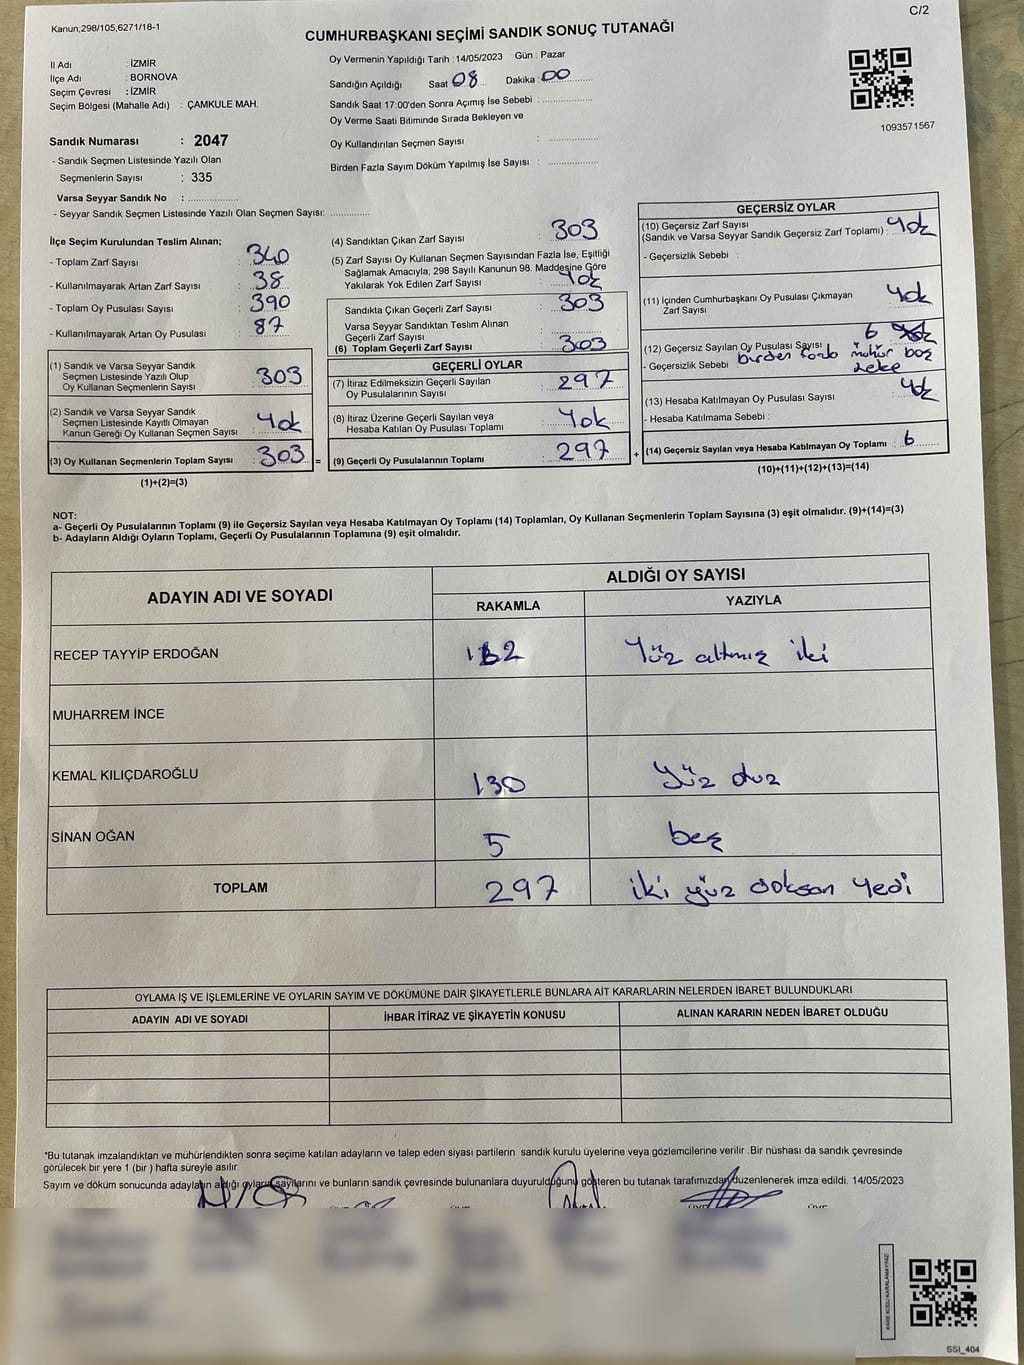 Kanun;298/105,6271/18-1
C/2
CUMHURBAŞKANI SEÇİMİ SANDIK SONUÇ TUTANAĞI
İl Adı : İZMİR
İlçe Adı : BORNOVA
Seçim Çevresi : İZMİR
Seçim Bölgesi (Mahalle Adı) : ÇAMKULE MAH.
Sandık Numarası : 2047
- Sandık Seçmen Listesinde Yazılı Olan
Seçmenlerin Sayısı : 335
Varsa Seyyar Sandık No : ..................
- Seyyar Sandık Seçmen Listesinde Yazılı Olan Seçmen Sayısı: ..............
Oy Vermenin Yapıldığı Tarih : 14/05/2023 Gün : Pazar
Sandığın Açıldığı Saat 08 Dakika : 00
Sandık Saat 17:00'den Sonra Açımış İse Sebebi : ..................
Oy Verme Saati Bitiminde Sırada Bekleyen ve
Oy Kullandırılan Seçmen Sayısı : ..................
Birden Fazla Sayım Döküm Yapılmış İse Sayısı : ..................
1093571567
İlçe Seçim Kurulundan Teslim Alınan;
- Toplam Zarf Sayısı : 340
- Kullanılmayarak Artan Zarf Sayısı : 38
- Toplam Oy Pusulası Sayısı : 390
- Kullanılmayarak Artan Oy Pusulası : 87
(1) Sandık ve Varsa Seyyar Sandık
Seçmen Listesinde Yazılı Olup
Oy Kullanan Seçmenlerin Sayısı : 303
(2) Sandık ve Varsa Seyyar Sandık
Seçmen Listesinde Kayıtlı Olmayan
Kanun Gereği Oy Kullanan Seçmen Sayısı : Yok
(3) Oy Kullanan Seçmenlerin Toplam Sayısı : 303 =
(1)+(2)=(3)
(4) Sandıktan Çıkan Zarf Sayısı : 303
(5) Zarf Sayısı Oy Kullanan Seçmen Sayısından Fazla İse, Eşitliği
Sağlamak Amacıyla; 298 Sayılı Kanunun 98. Maddesine Göre
Yakılarak Yok Edilen Zarf Sayısı : Yok
Sandıkta Çıkan Geçerli Zarf Sayısı : 303
Varsa Seyyar Sandıktan Teslim Alınan
Geçerli Zarf Sayısı : ..................
(6) Toplam Geçerli Zarf Sayısı : 303
GEÇERLİ OYLAR
(7) İtiraz Edilmeksizin Geçerli Sayılan
Oy Pusulalarının Sayısı : 297
(8) İtiraz Üzerine Geçerli Sayılan veya
Hesaba Katılan Oy Pusulası Toplamı : Yok
(9) Geçerli Oy Pusulalarının Toplamı : 297 +
GEÇERSİZ OYLAR
(10) Geçersiz Zarf Sayısı
(Sandık ve Varsa Seyyar Sandık Geçersiz Zarf Toplamı) : Yok
- Geçersizlik Sebebi :
(11) İçinden Cumhurbaşkanı Oy Pusulası Çıkmayan
Zarf Sayısı : Yok
(12) Geçersiz Sayılan Oy Pusulası Sayısı : 6
- Geçersizlik Sebebi : birden fazla mühür boş
leke
(13) Hesaba Katılmayan Oy Pusulası Sayısı : Yok
- Hesaba Katılmama Sebebi :
(14) Geçersiz Sayılan veya Hesaba Katılmayan Oy Toplamı : 6
(10)+(11)+(12)+(13)=(14)
NOT:
a- Geçerli Oy Pusulalarının Toplamı (9) ile Geçersiz Sayılan veya Hesaba Katılmayan Oy Toplamı (14) Toplamları, Oy Kullanan Seçmenlerin Toplam Sayısına (3) eşit olmalıdır. (9)+(14)=(3)
b- Adayların Aldığı Oyların Toplamı, Geçerli Oy Pusulalarının Toplamına (9) eşit olmalıdır.
ADAYIN ADI VE SOYADI
ALDIĞI OY SAYISI
RAKAMLA YAZIYLA
RECEP TAYYİP ERDOĞAN 162 Yüz altmış iki
MUHARREM İNCE
KEMAL KILIÇDAROĞLU 130 Yüz otuz
SİNAN OĞAN 5 beş
TOPLAM 297 iki yüz doksan yedi
OYLAMA İŞ VE İŞLEMLERİNE VE OYLARIN SAYIM VE DÖKÜMÜNE DAİR ŞİKAYETLERLE BUNLARA AİT KARARLARIN NELERDEN İBARET BULUNDUKLARI
ADAYIN ADI VE SOYADI İHBAR İTİRAZ VE ŞİKAYETİN KONUSU ALINAN KARARIN NEDEN İBARET OLDUĞU
*Bu tutanak imzalandıktan ve mühürlendikten sonra seçime katılan adayların ve talep eden siyasi partilerin sandık kurulu üyelerine veya gözlemcilerine verilir .Bir nüshası da sandık çevresinde
görülecek bir yere 1 (bir ) hafta süreyle asılır.
Sayım ve döküm sonucunda adayların aldığı oyların sayılarını ve bunların sandık çevresinde bulunanlara duyurulduğunu gösteren bu tutanak tarafımızdan düzenlenerek imza edildi. 14/05/2023
KARE KODU KARALAMAYINIZ!
SSI_404